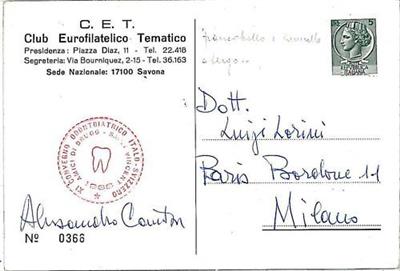 C. E. T.
Club Eurofilatelico Tematico
Presidenza: Piazza Diaz, 11 - Tel. 22.418
Segreteria: Via Bourniquez, 2-15 - Tel. 36.163
Sede Nazionale: 17100 Savona
5
REPUBBLICA
ITALIANA
a tergo...
XI CONVEGNO ODONTOIATRICO ITALO-SVIZZERO
AMICI DI BRUGG - SAINT VINCENT
Alessandro
Nº 0366
Dott.
Luigi Lorini
Paris Bordone 11
Milano